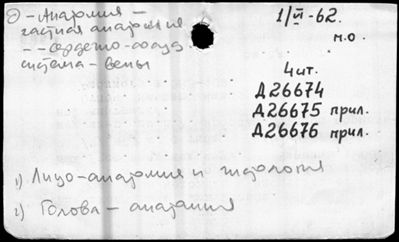 ⊖ – Анатомия –
частная анатомия
– – сердечно-сосуд
система – вены
1/VI-62.
м.о.
4 шт.
Д26674
Д26675 прил.
Д26676 прил.
1) Лицо – анатомия и гистология
2) Голова – анатомия